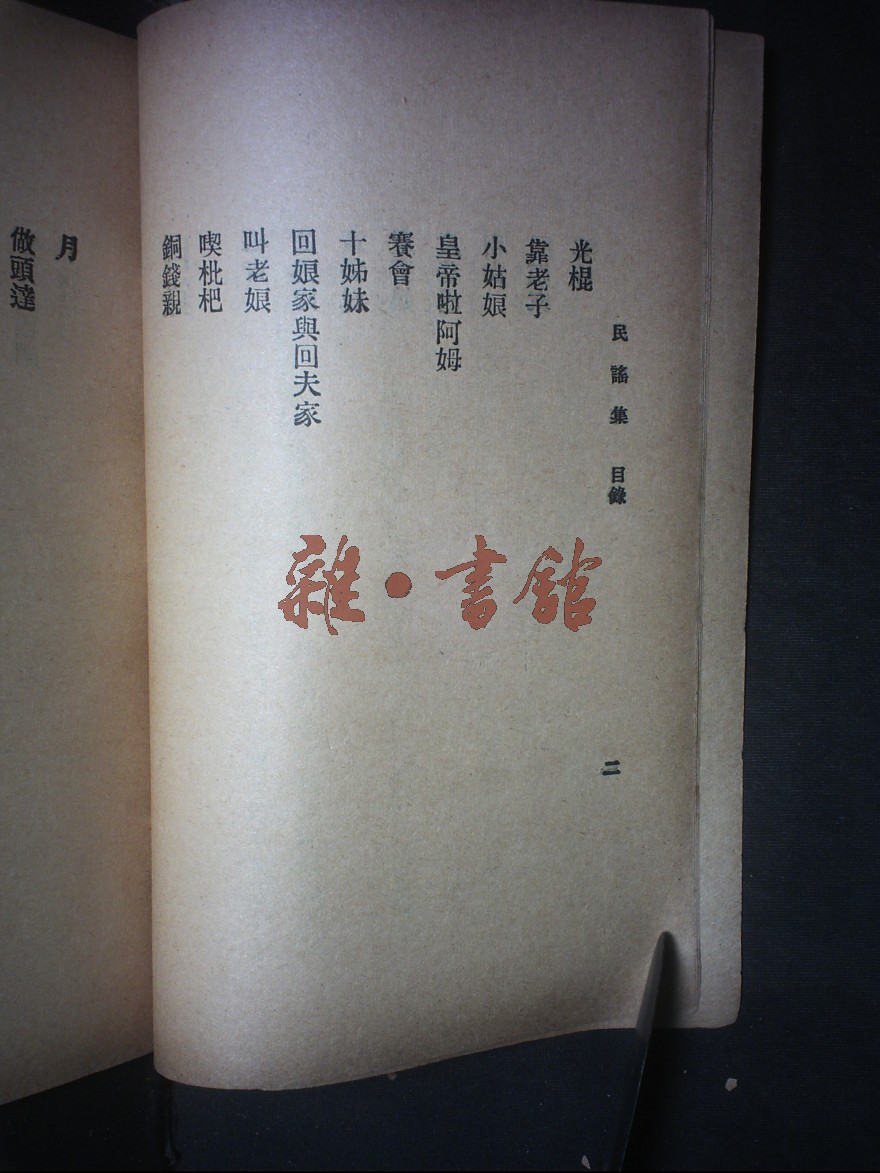 民謠集 目錄
二
光棍
靠老子
小姑娘
皇帝啦阿姆
賽會
十姊妹
回娘家與回夫家
叫老娘
喫枇杷
銅錢親
月
做頭達
雜·書館